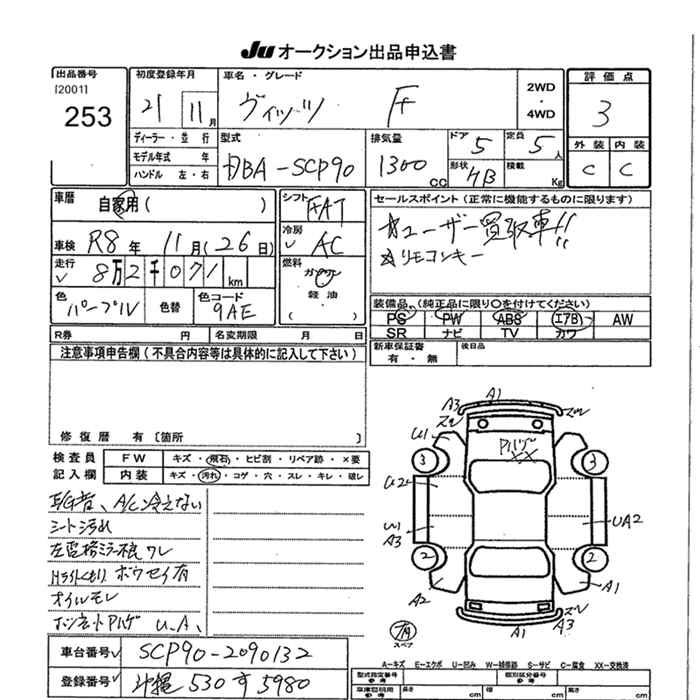 JU オークション出品申込書
出品番号
[2001]
253
初度登録年月
21 11月
車名・グレード
ヴィッツ F
2WD
・
4WD
評価点
3
ディーラー・並行
モデル年式 年
ハンドル 左・右
型式
DBA-SCP90
排気量
1300 cc
ドア 5
定員 5人
形状 HB
積載 Kg
外装 内装
C C
車歴
自家用( )
車検 R8年 11月(26日)
走行 8万2千071 km
色 パープル 色替
色コード 9AE
シフト FAT
冷房 AC
燃料
ガソリン
軽油
セールスポイント(正常に機能するものに限ります)
☆ユーザー買取車!!
☆リモコンキー
装備品(純正品に限り○を付けてください)
PS PW ABS エアB AW
SR ナビ TV カワ
R券 円
名変期限 月 日
新車保証書
有・無
後日品
注意事項申告欄(不具合内容等は具体的に記入して下さい)
修復歴 有〔箇所 〕
検査員
記入欄
FW キズ・飛石・ヒビ割・リペア跡・×要
内装 キズ・汚れ・コゲ・穴・スレ・キレ・破レ
A/C冷えない
シート汚れ
左電格ミラー根ワレ
Hライトくもり ボウセイ有
オイルモレ
ボンネットPハゲ U、A、
A1
A3 ズレ
ズレ
U1
Pハゲ
XX
3 3
U2
U1
A3
UA2
2 2
A2
A1
ズレ
A1 A3
スペア
車台番号 SCP90-2090132
登録番号 沖縄 530 す 5980
A-キズ E-エクボ U-凹ミ W-補修跡 S-サビ C-腐食 XX-交換済
型式指定番号
参考
類別区分番号
参考
車庫証明用
参考
長さ cm
幅 cm
高さ cm